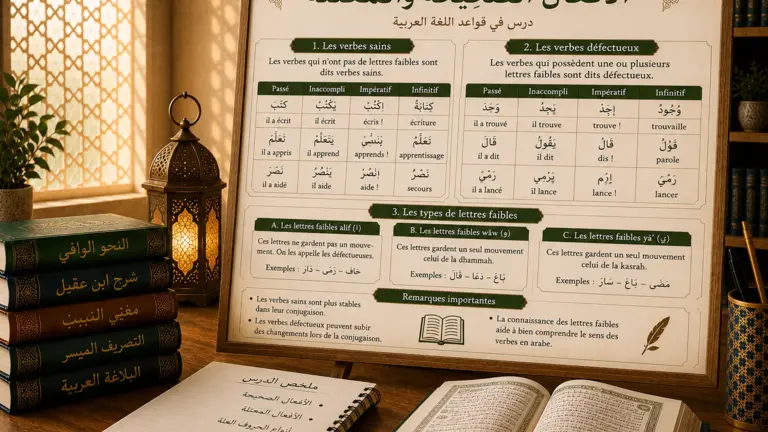 الأفعال الصحيحة والمعتلة
درس في قواعد اللغة العربية
1. Les verbes sains
Les verbes qui n'ont pas de lettres faibles
sont dits verbes sains.
Passé Inaccompli Impératif Infinitif
كتَبَ يَكْتُبُ اِكْتُبْ كِتَابَةٌ
il a écrit il écrit écris ! écriture
تَعَلَّمَ يَتَعَلَّمُ تَعَلُّمٌ
il a appris il apprend apprends ! apprentissage
نَصَرَ يَنْصُرُ اِنْصُرْ نَصْرٌ
il a aidé il aide aide ! secours
2. Les verbes défectueux
Les verbes qui possèdent une ou plusieurs
lettres faibles sont dits défectueux.
Passé Inaccompli Impératif Infinitif
وَجَدَ يَجِدُ إِجِدْ وُجُودٌ
il a trouvé il trouve trouve ! trouvaille
قَالَ يَقُولُ قَالْ قَوْلٌ
il a dit il dit dis ! parole
رَمَىَ يَرْمِي اِرْمِ رَمْيٌ
il a lancé il lance lance ! lancer
3. Les types de lettres faibles
A. Les lettres faibles alif (ا)
Ces lettres ne gardent pas un mouve-
ment. On les appelle les défectueuses.
Exemples : خَافَ – رَمَى – دَارَ
B. Les lettres faibles wāw (و)
Ces lettres gardent un seul mouvement
celui de la dhammah.
Exemples : بَاعَ – دَعَا – قَالَ
C. Les lettres faibles yā' (ي)
Ces lettres gardent un seul mouvement
celui de la kasrah.
Exemples : مَضَى – بَاعَ – سَارَ
Remarques importantes
• Les verbes sains sont plus stables
dans leur conjugaison.
• Les verbes défectueux peuvent subir
des changements lors de la conjugaison.
• La connaissance des lettres faibles
aide à bien comprendre le sens des
verbes en arabe.
النحو الوافي
شرح ابن عقيل
مغني النبيب
التصريف الميسر
البلاغة العربية
ملخص الدرس
• الأفعال الصحيحة
• الأفعال المعتلة
أنواع الحروف العلة